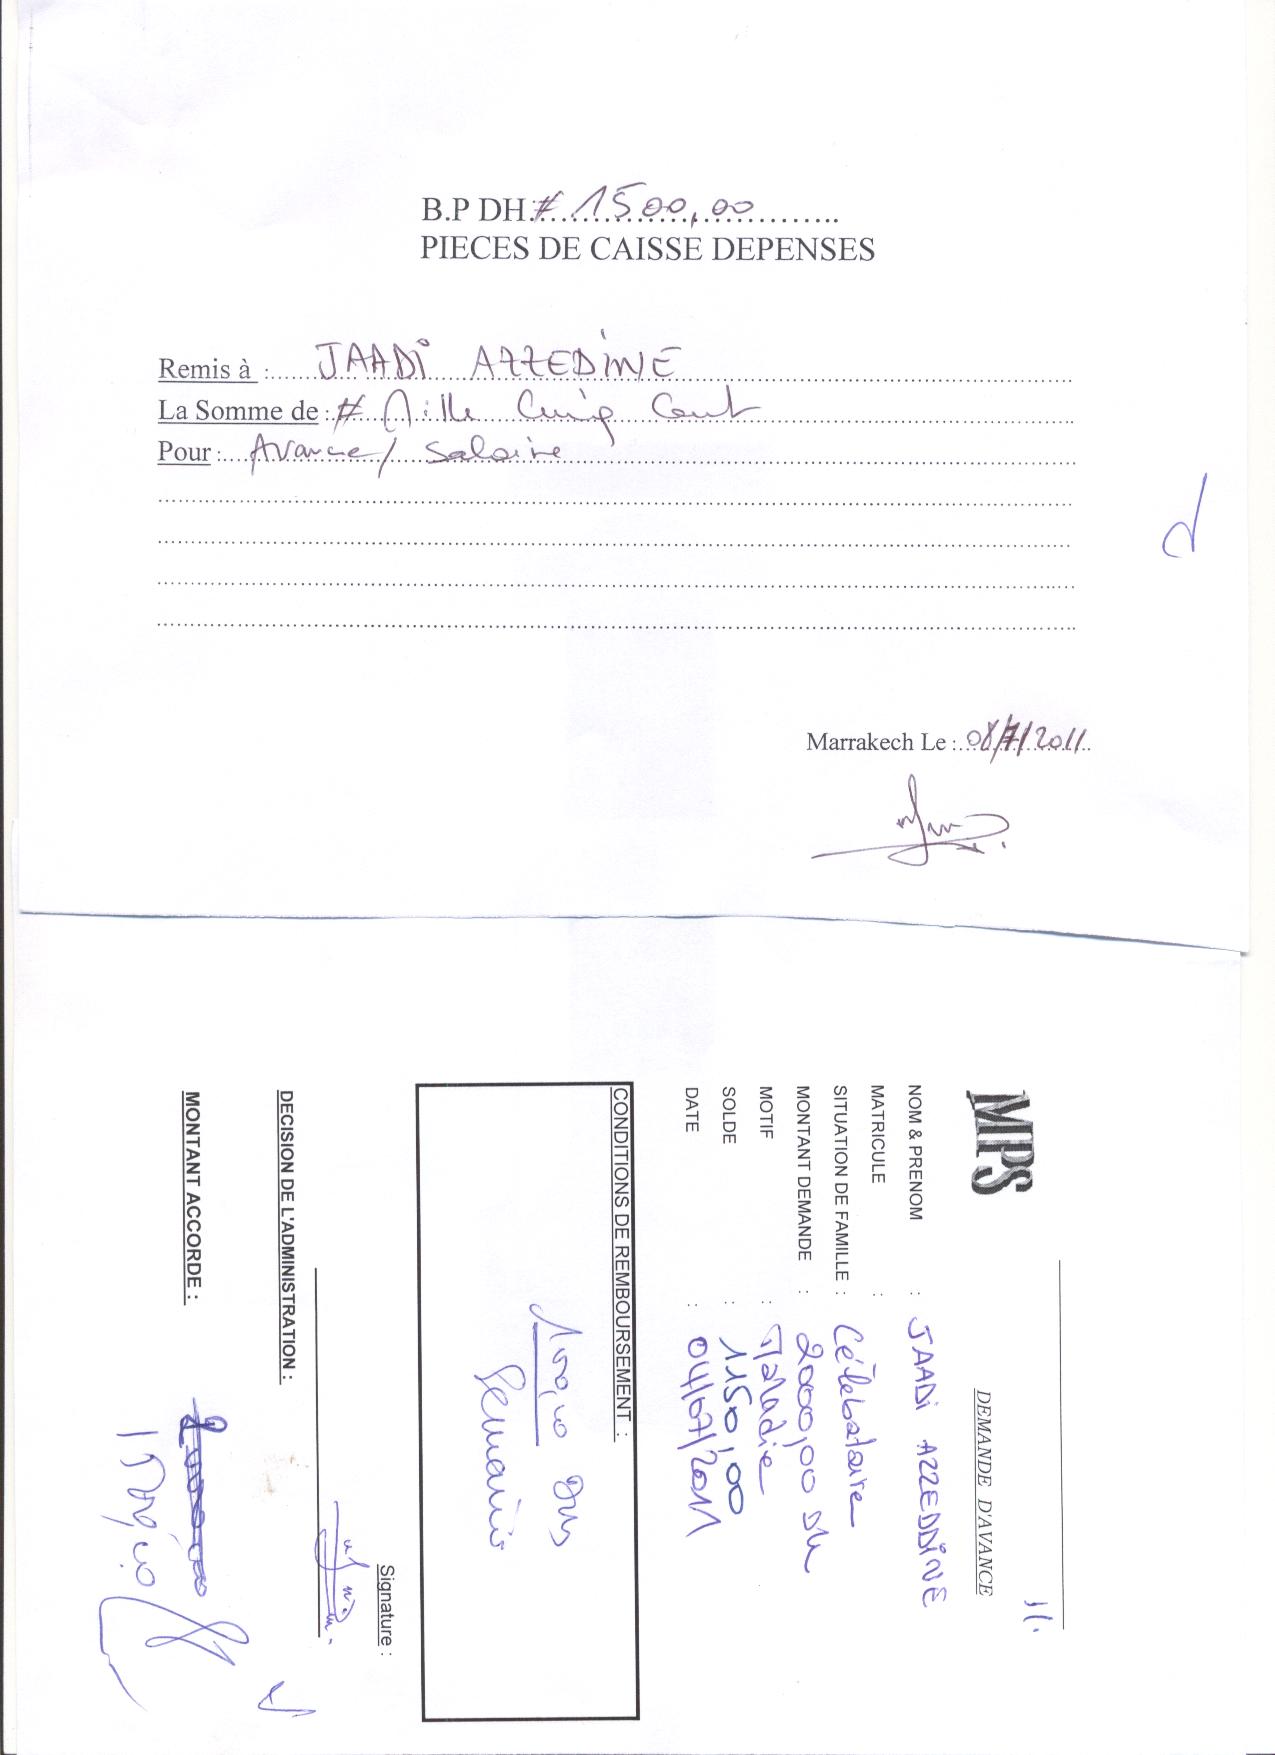 B.P DH:# 1500,00
PIECES DE CAISSE DEPENSES
Remis à : JAADI AZZEDINE
La Somme de : # Mille Cinq Cent
Pour : Avance/ Salaire
Marrakech Le : 08/7/2011
MPS
DEMANDE D'AVANCE
NOM & PRENOM : JAADI AZZEDDINE
MATRICULE :
SITUATION DE FAMILLE : Célebataire
MONTANT DEMANDE : 2000,00 Dh
MOTIF : Maladie
SOLDE : 1150,00
DATE : 04/07/2011
CONDITIONS DE REMBOURSEMENT :
Signature :
DECISION DE L'ADMINISTRATION :
MONTANT ACCORDE :